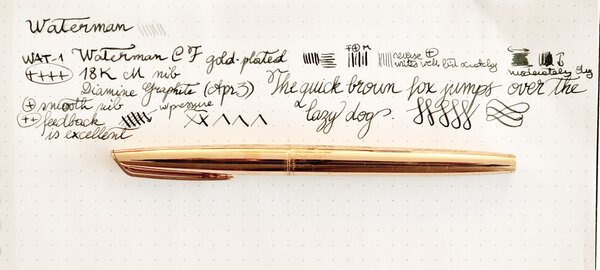 Waterman
WAT-1 Waterman CF gold-plated
++++ 18K M nib
Diamine Graphite (Apr 3)
+ smooth nib w pressure
++ feedback is excellent
F M
reverse +
writes well but scratchy
moderately dry
The quick brown fox jumps over the
lazy dog.